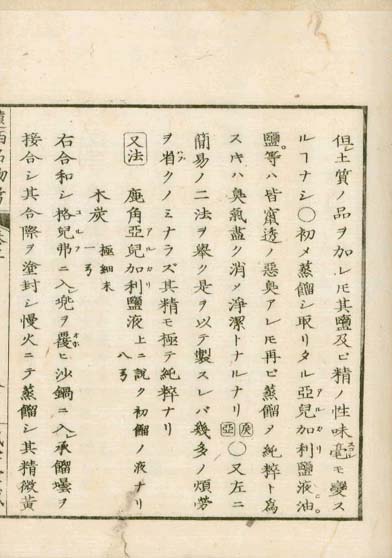 但土質ノ品ヲ加レモ其鹽及ビ精ノ性味毫モ變ス
ルヿナシ〇初メ蒸餾シ取リタル亞兒加利鹽液油
鹽等ハ皆竄透ノ惡臭アレモ再ビ蒸餾ヲ純粹ト為
スキハ臭氣盡ク消メ淨潔トナルナリ 亞矦 〇又左ニ
簡易ノ二法ヲ舉ク是ヲ以テ製スレバ幾多ノ煩勞
ヲ省クノミナラズ其精モ極テ純粹ナリ
又法 鹿角亞兒加利鹽液 上ニ說ク初餾ノ液ナリ 八弓
木炭 極細末 一弓
右合和シ格兒弗ニ入兠ヲ覆ヒ沙鍋ニ入承餾壜ヲ
接合シ其合際ヲ塗封シ慢火ニテ蒸餾シ其精微黄